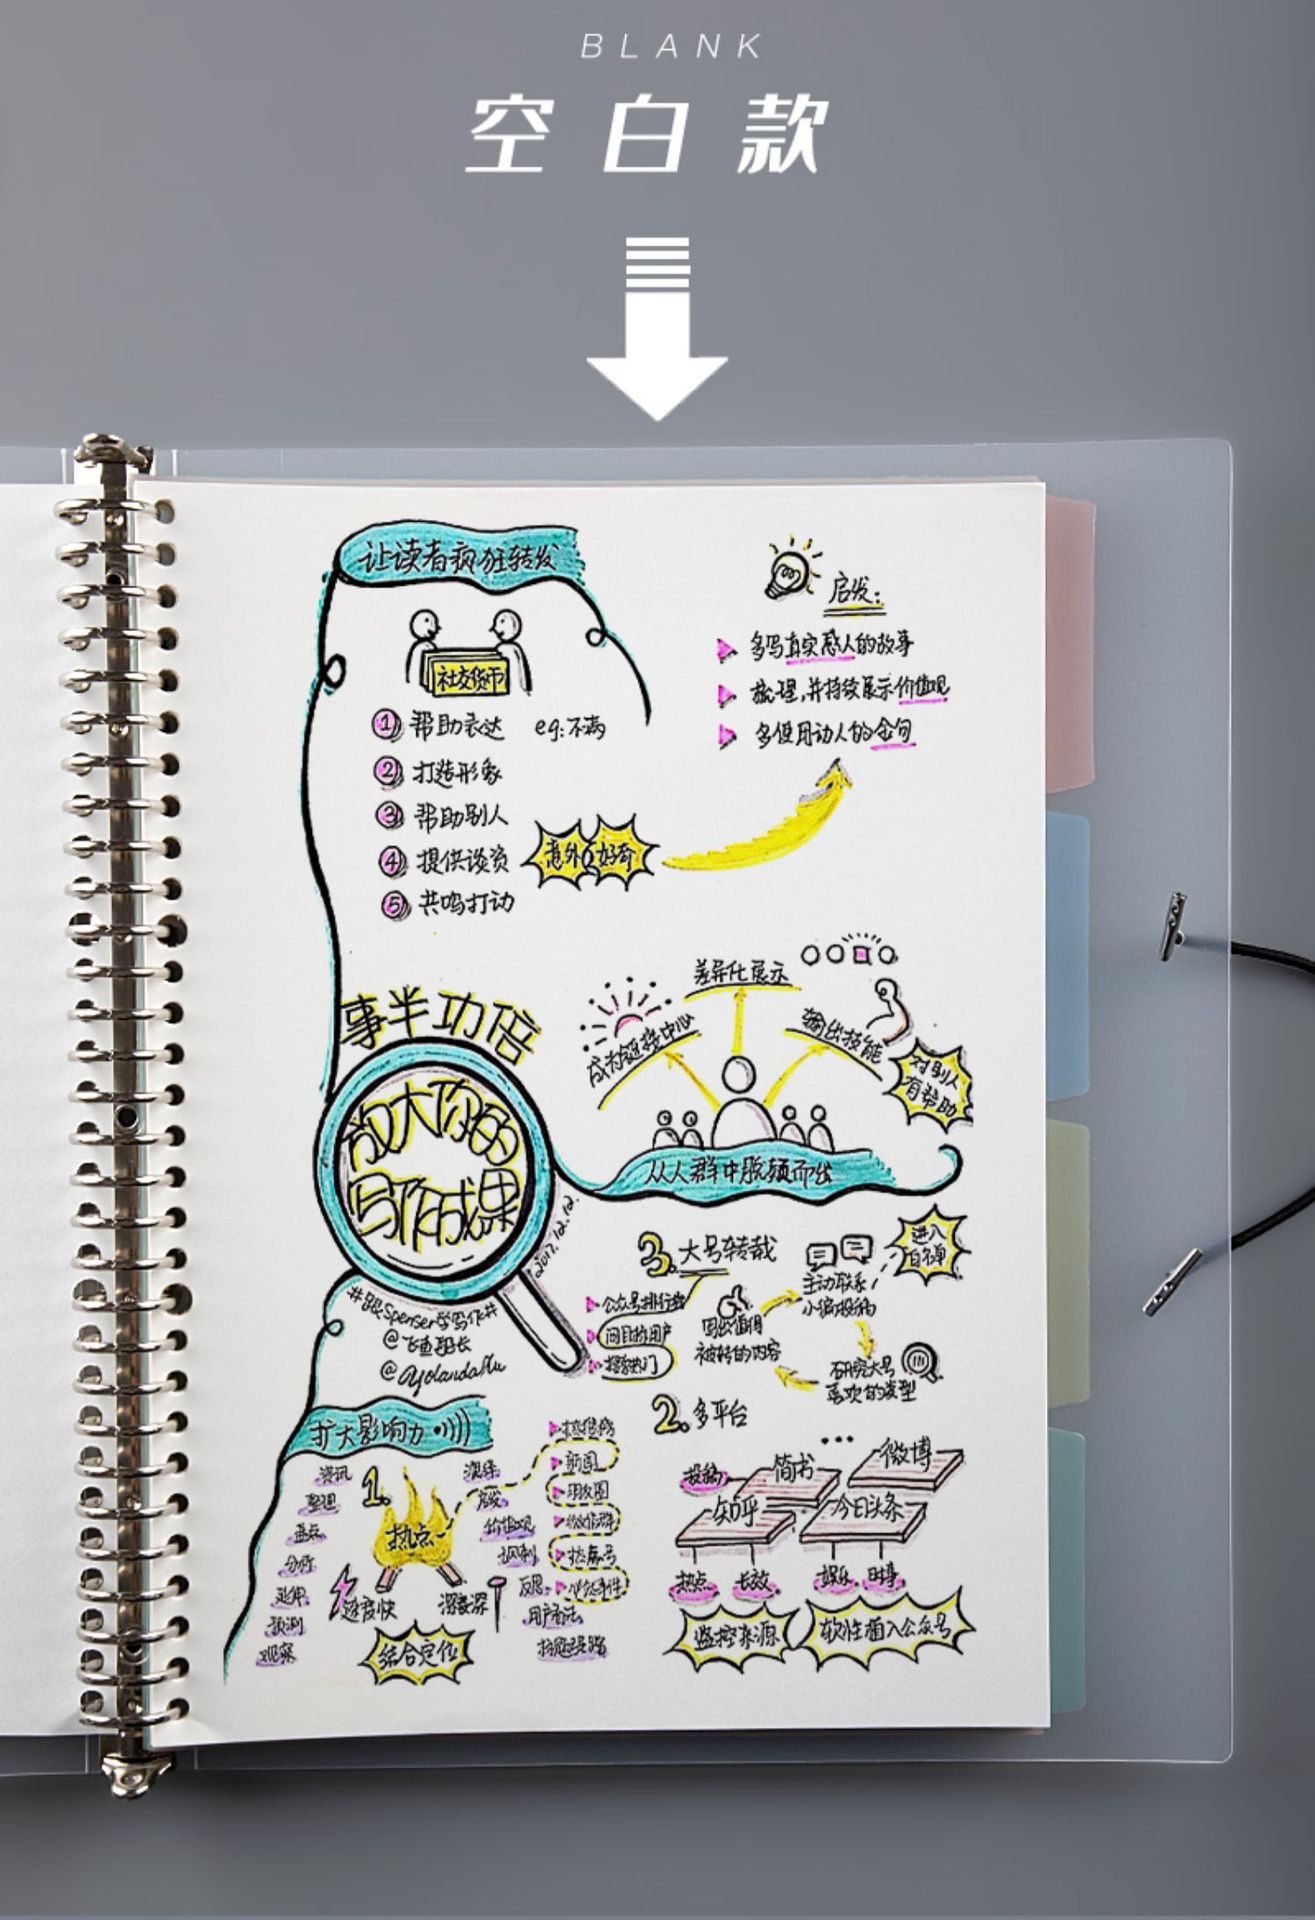 BLANK
空白款
让读者疯狂转发
社交货币
① 帮助表达 eg:不满
② 打造形象
③ 帮助别人
④ 提供谈资
⑤ 共鸣打动
意外&好奇
启发:
多写真实感人的故事
梳理,并持续展示价值观
多使用动人的金句
事半功倍
放大你的
写作成果
2017.12.12.
#跟Spenser学写作#
@飞鱼船长
差异化展示
成为链接中心
输出技能
对别人
有帮助
从人群中脱颖而出
3.大号转载
公众号排行榜
问目标用户
搜索热门
写出值得
被转的内容
主动联系
小编投稿
进入
白名单
研究大号
喜欢的类型
2.多平台
投稿
简书
...
微博
知乎
今日头条
热点
长效
娱乐
时事
监控来源
软性植入公众号
扩大影响力
1.
热点
资讯
整理
盘点
分析
延伸
预测
观察
速度快
深度深
综合定位
演绎
启发
价值观
讽刺
反思
热搜榜
新闻
朋友圈
微信群